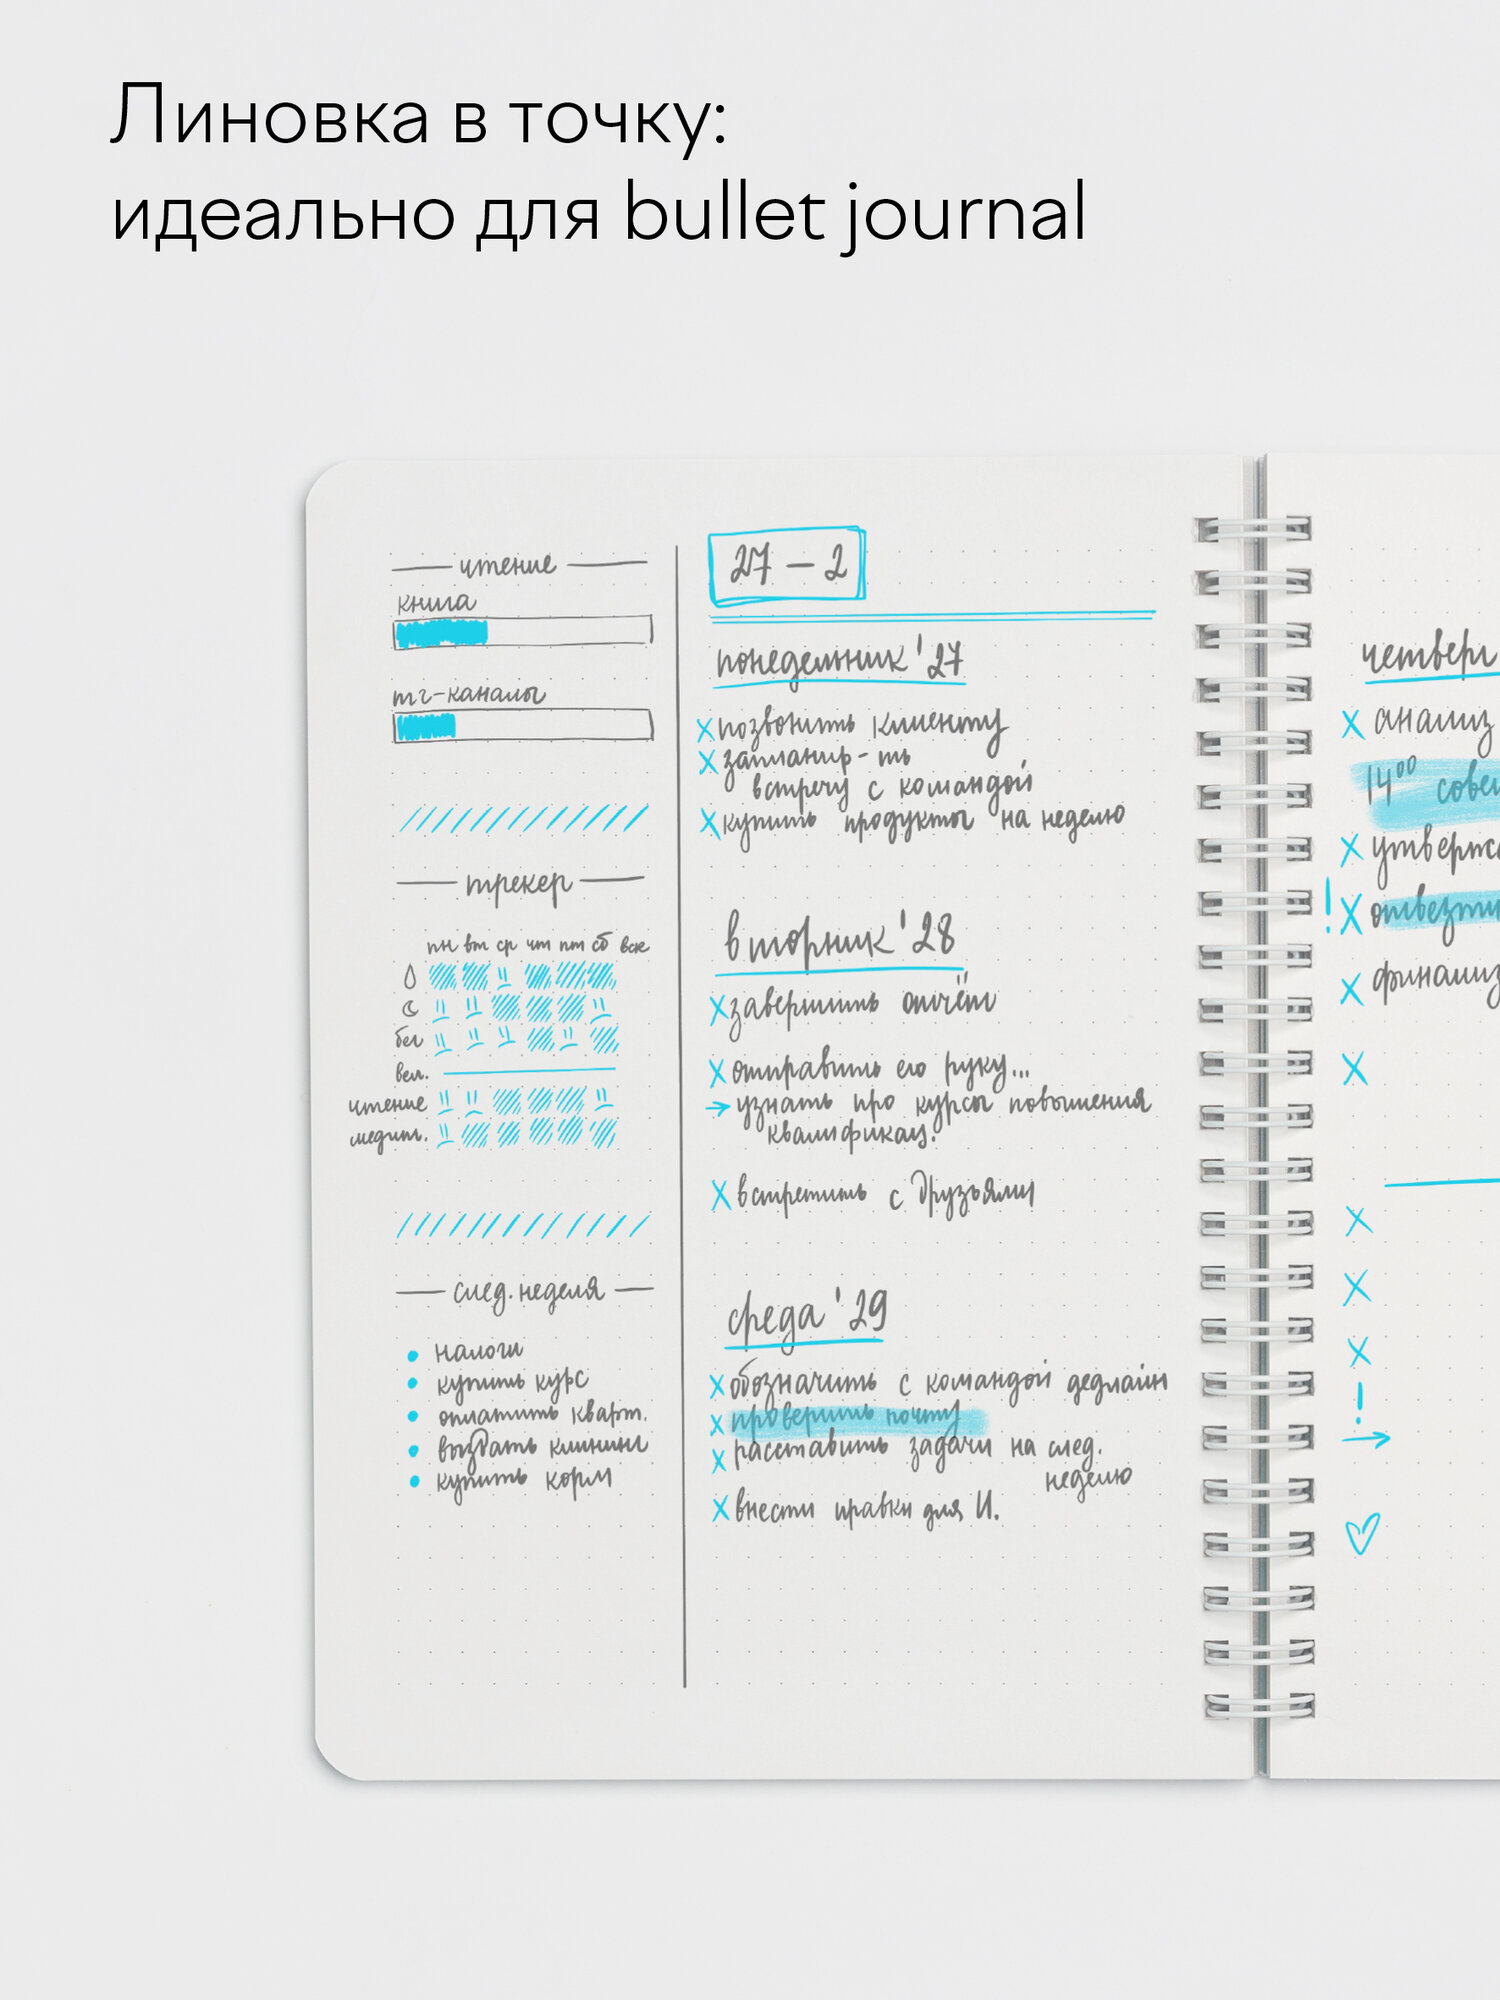 Линовка в точку:
идеально для bullet journal
чтение
книга
тг-каналы
трекер
пн вт ср чт пт сб вск
бег
вел.
чтение
медит.
след. неделя
налоги
купить курс
оплатить кварт.
вызвать клининг
купить корм
27 – 2
понедельник '27
позвонить клиенту
запланир-ть
встречу с командой
купить продукты на неделю
вторник '28
завершить отчёт
отправить его руку...
узнать про курсы повышения
квалификац.
встретить с друзьями
среда '29
обозначить с командой дедлайн
проверить почту
расставить задачи на след.
неделю
внести правки для И.
четверг
анализ
14⁰⁰ совещ
утверж
отвезти
финализ